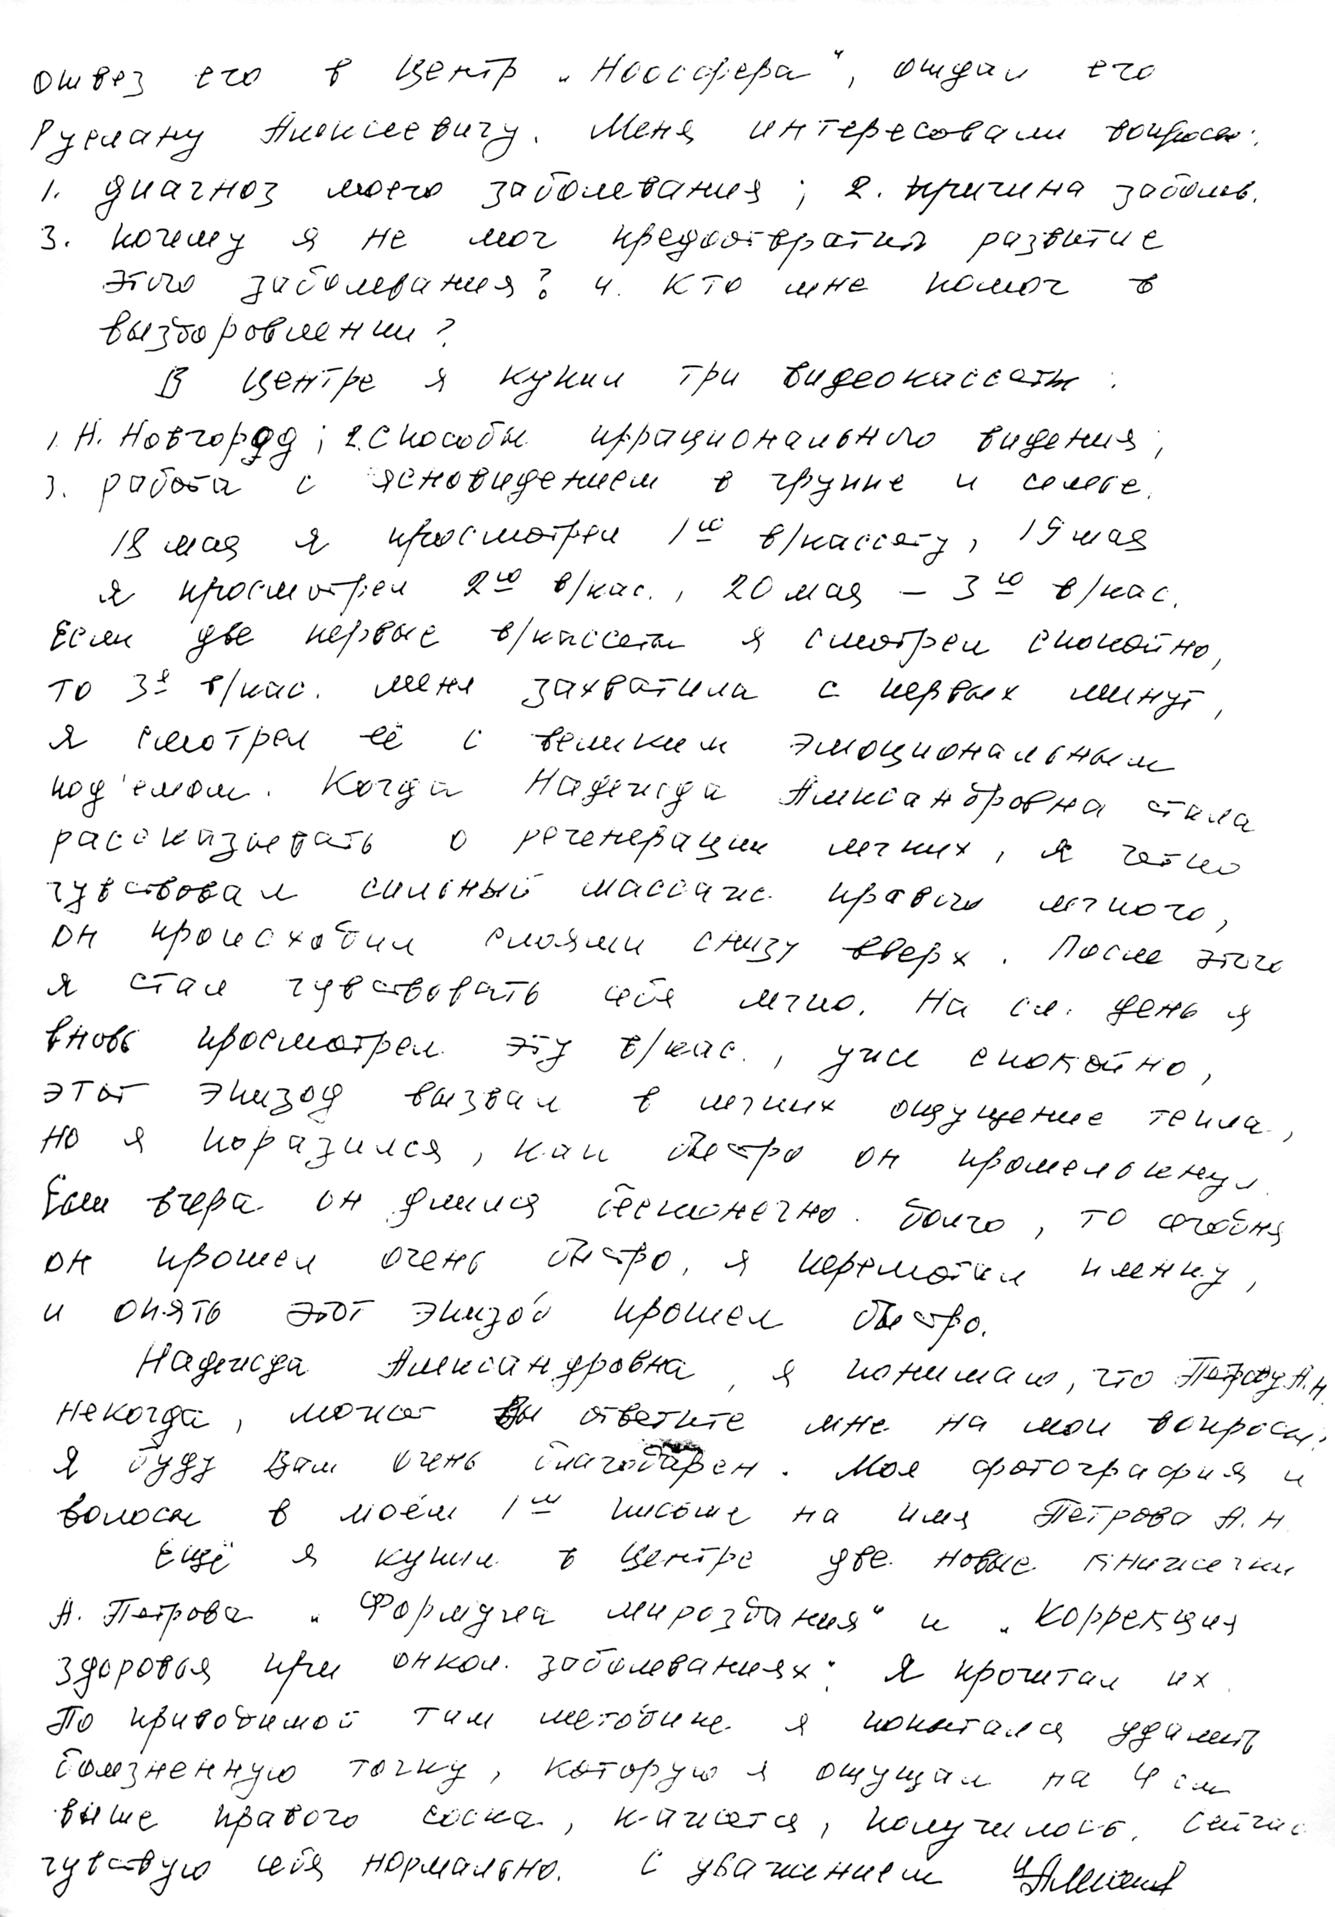 отвез его в Центр „Ноосфера", отдал его
Руслану Алексеевичу. Меня интересовали вопросы:
1. диагноз моего заболевания; 2. причина заболев.
3. почему я не мог предотвратить развитие
этого заболевания? 4. Кто мне помог в
выздоровлении?
В Центре я купил три видеокассеты:
1. Н. Новгород; 2. Способы иррационального видения;
3. работа с ясновидением в группе и семье.
18 мая я просмотрел 1ую в/кассету, 19 мая
я просмотрел 2ую в/кас., 20 мая – 3ю в/кас.
Если две первые в/кассеты я смотрел спокойно,
то 3я в/кас. меня захватила с первых минут,
я смотрел её с великим эмоциональным
под'емом. Когда Надежда Александровна стала
рассказывать о регенерации легких, я четко
чувствовал сильный массаж правого легкого,
он происходил слоями снизу вверх. После этого
я стал чувствовать себя легко. На сл. день я
вновь просмотрел эту в/кас., уже спокойно,
этот эпизод вызвал в легких ощущение тепла,
но я поразился, как быстро он промелькнул.
Если вчера он длился бесконечно долго, то сегодня
он прошел очень быстро, я перемотал пленку,
и опять этот эпизод прошел быстро.
Надежда Александровна, я понимаю, что Петрову А.Н.
некогда, может Вы ответите мне на мои вопросы.
Я буду Вам очень благодарен. Моя фотография и
волосы в моём 1м письме на имя Петрова А.Н.
Ещё я купил в Центре две новые книжечки
А. Петрова „Формула мироздания" и „Коррекция
здоровья при онкол. заболеваниях". Я прочитал их.
По приводимой там методике я попытался удалить
болезненную точку, которую я ощущал на 4 см
выше правого соска, кажется, получилось. Сейчас
чувствую себя нормально. С уважением